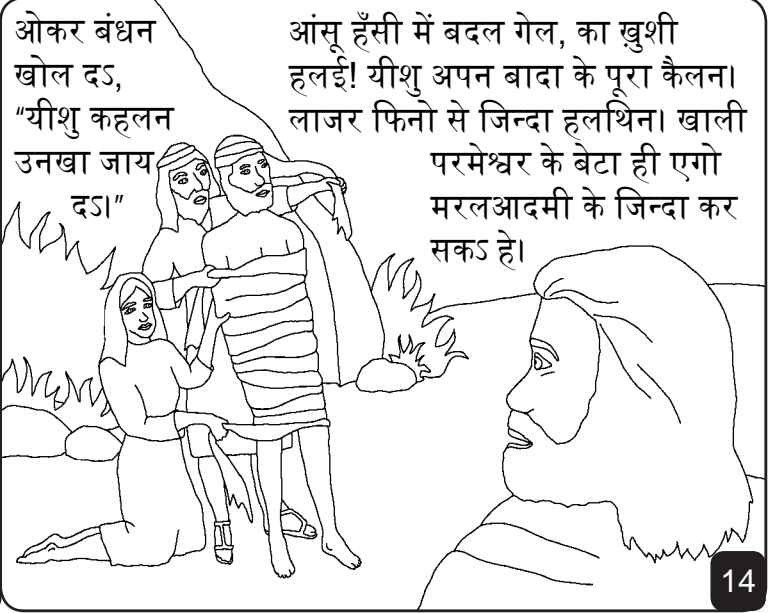 ओकर बंधन
खोल दऽ,
“यीशु कहलन
उनखा जाय
दऽ।”
आंसू हँसी में बदल गेल, का ख़ुशी
हलई! यीशु अपन बादा के पूरा कैलन।
लाजर फिनो से जिन्दा हलथिन। खाली
परमेश्वर के बेटा ही एगो
मरलआदमी के जिन्दा कर
सकऽ हे।
14